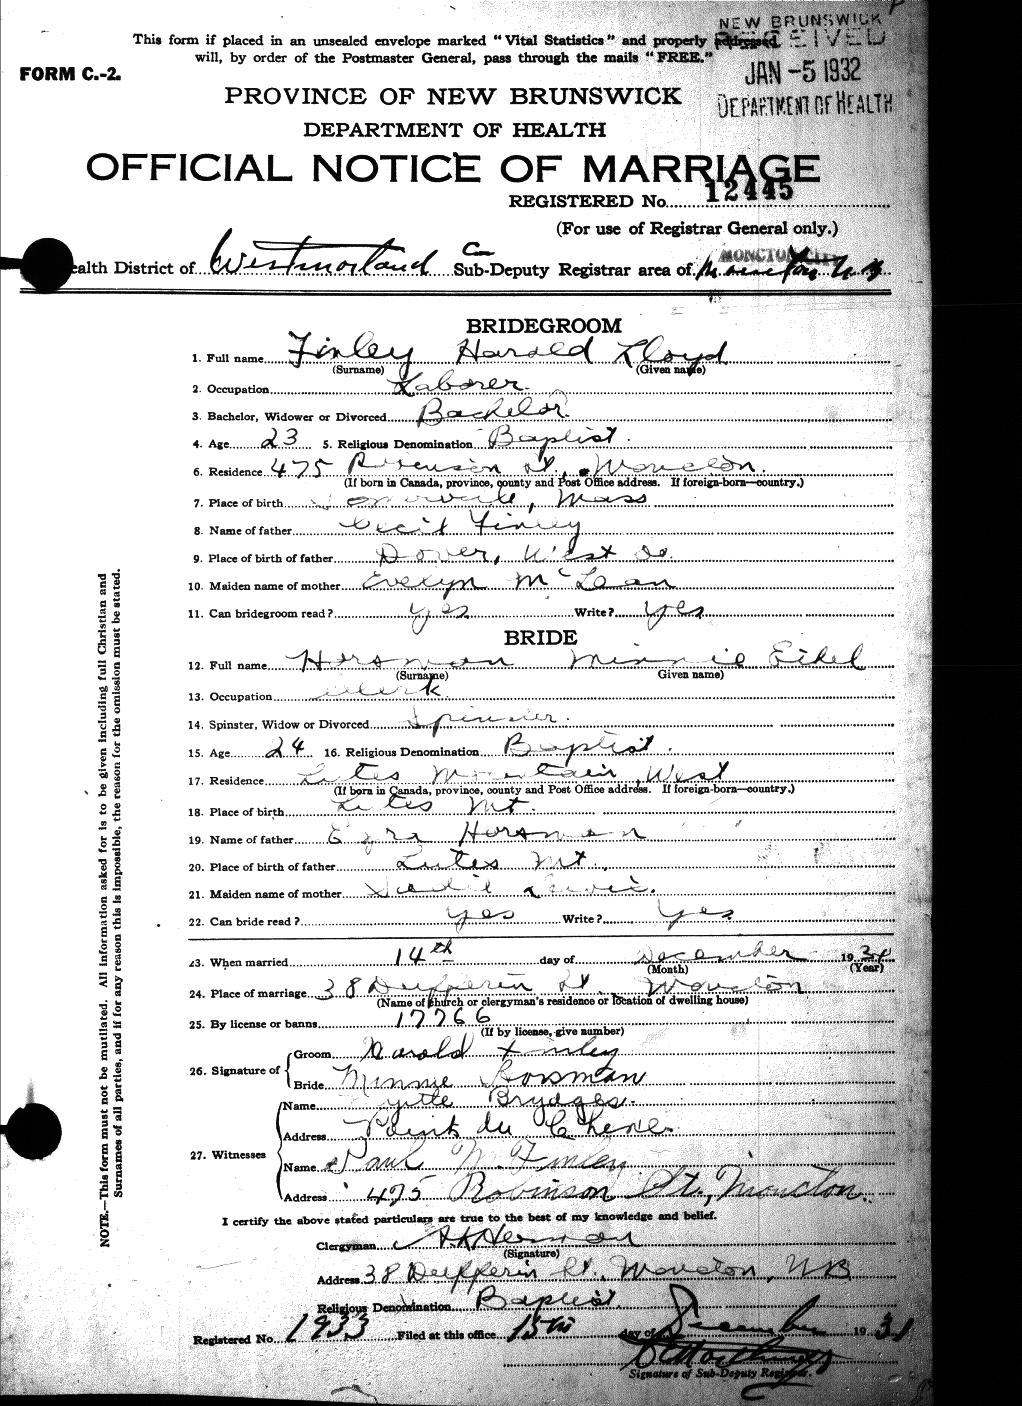 NEW BRUNSWICK
This form if placed in an unsealed envelope marked "Vital Statistics" and properly addressed RECEIVED
will, by order of the Postmaster General, pass through the mails "FREE."
FORM C.-2.
JAN -5 1932
PROVINCE OF NEW BRUNSWICK
DEPARTMENT OF HEALTH
DEPARTMENT OF HEALTH
OFFICIAL NOTICE OF MARRIAGE
REGISTERED No. 12445
(For use of Registrar General only.)
MONCTON CITY
ealth District of Westmorland Co Sub-Deputy Registrar area of Moncton N.B
BRIDEGROOM
1. Full name Finley Harold Lloyd
(Surname) (Given name)
2. Occupation Laborer.
3. Bachelor, Widower or Divorced Bachelor.
4. Age 23 5. Religious Denomination Baptist.
6. Residence 475 St., Moncton.
(If born in Canada, province, county and Post Office address. If foreign-born—country.)
7. Place of birth Somerville, Mass
8. Name of father Cecil Finley
9. Place of birth of father Dover, West Co.
10. Maiden name of mother Evelyn McLean
11. Can bridegroom read? yes Write? yes
BRIDE
12. Full name Horsman Minnie Ethel
(Surname) Given name)
13. Occupation Clerk
14. Spinster, Widow or Divorced Spinster.
15. Age 24 16. Religious Denomination Baptist.
17. Residence Lutes Mountain, West
(If born in Canada, province, county and Post Office address. If foreign-born—country.)
18. Place of birth Lutes Mt.
19. Name of father Ezra Horsman
20. Place of birth of father Lutes Mt.
21. Maiden name of mother Sadie Lewis.
22. Can bride read? yes Write? yes
23. When married 14th day of December 1931
(Month) (Year)
24. Place of marriage 38 Dufferin St. Moncton
(Name of church or clergyman's residence or location of dwelling house)
25. By license or banns 17766
(If by license, give number)
26. Signature of
Groom Harold Finley
Bride Minnie Horsman
27. Witnesses
Name Myrtle Brydges.
Address Point du Chene.
Name Paul M. Finley
Address 475 Robinson St., Moncton.
I certify the above stated particulars are true to the best of my knowledge and belief.
Clergyman
(Signature)
Address 38 Dufferin St., Moncton, NB
Religious Denomination Baptist.
Registered No. 1933 Filed at this office 15th day of December 1931
Signature of Sub-Deputy Registrar.
NOTE.—This form must not be mutilated. All information asked for is to be given including full Christian and
Surnames of all parties, and if for any reason this is impossible, the reason for the omission must be stated.